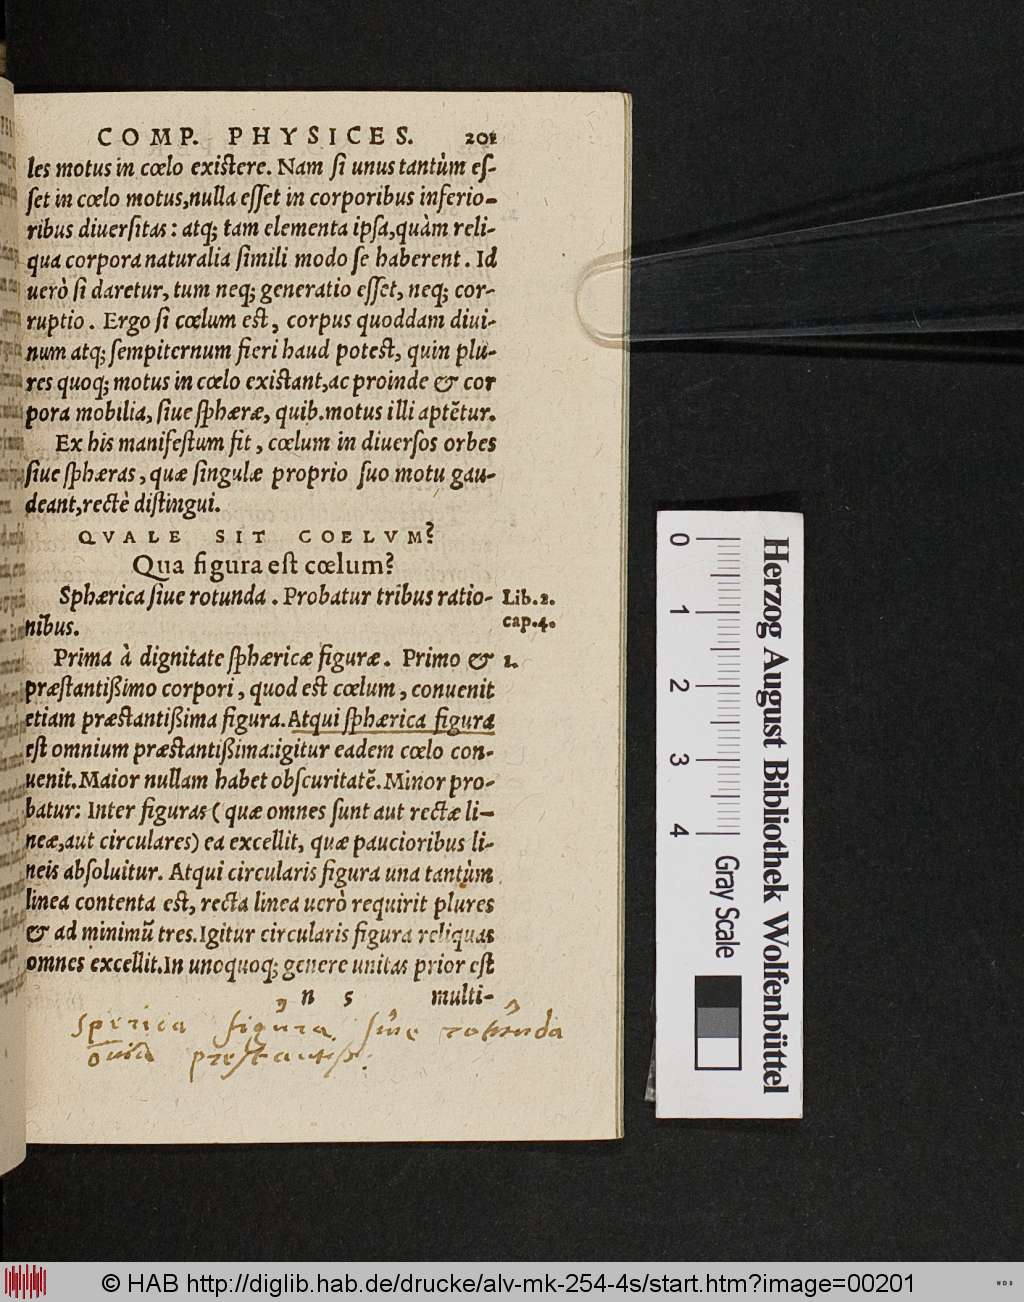 COMP. PHYSICES. 201
les motus in cœlo existere. Nam ſi unus tantùm eſ-
ſet in cœlo motus, nulla eſſet in corporibus inferio-
ribus diuerſitas: atq; tam elementa ipſa, quàm reli-
qua corpora naturalia ſimili modo ſe haberent. Id
uerò ſi daretur, tum neq; generatio eſſet, neq; cor-
ruptio. Ergo ſi cœlum est, corpus quoddam diui-
num atq; ſempiternum fieri haud potest, quin plu-
res quoq; motus in cœlo existant, ac proinde & cor
pora mobilia, ſiue ſphæræ, quib. motus illi aptẽtur.
Ex his manifeſtum fit, cœlum in diuerſos orbes
ſiue ſphæras, quæ ſingulæ proprio ſuo motu gau-
deant, rectè diſtingui.
QVALE SIT COELVM?
Qua figura eſt cœlum?
Sphærica ſiue rotunda. Probatur tribus ratio- Lib. 2.
nibus. cap. 4.
Prima à dignitate ſphæricæ figuræ. Primo & 1.
præſtantißimo corpori, quod est cœlum, conuenit
etiam præstantißima figura. Atqui ſphærica figura
eſt omnium præstantißima: igitur eadem cœlo con-
uenit. Maior nullam habet obſcuritatẽ. Minor pro-
batur: Inter figuras (quæ omnes ſunt aut rectæ li-
neæ, aut circulares) ea excellit, quæ paucioribus li-
neis abſoluitur. Atqui circularis figura una tantùm
linea contenta est, recta linea uerò requirit plures
& ad minimũ tres. Igitur circularis figura reliquas
omnes excellit. In unoquoq; genere unitas prior est
n 5 multi-
sperica figura ſiue rotunda
omniũ preſtantiſſ:
Herzog August Bibliothek Wolfenbüttel
0 1 2 3 4 Gray Scale
© HAB http://diglib.hab.de/drucke/alv-mk-254-4s/start.htm?image=00201